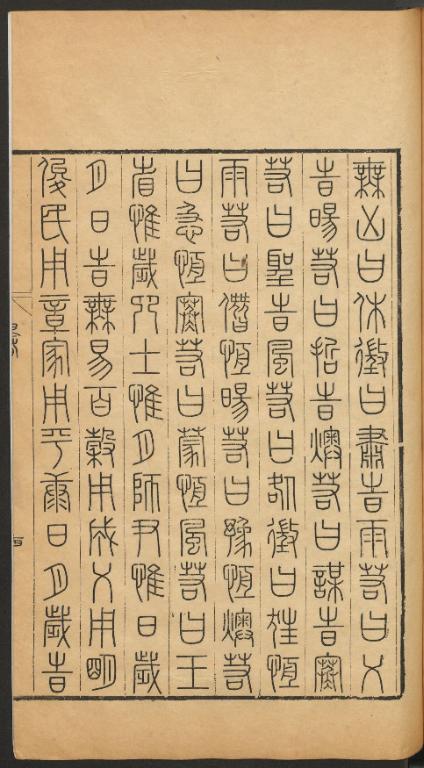 無凶曰休徵曰肅時雨若曰乂
時暘若曰哲時燠若曰謀時寒
若曰聖時風若曰咎徵曰狂恆
雨若曰僭恆暘若曰豫恆燠若
曰急恆寒若曰蒙恆風若曰王
省惟歲卿士惟月師尹惟日歲
月日時無易百穀用成乂用明
俊民用章家用平康日月歲時